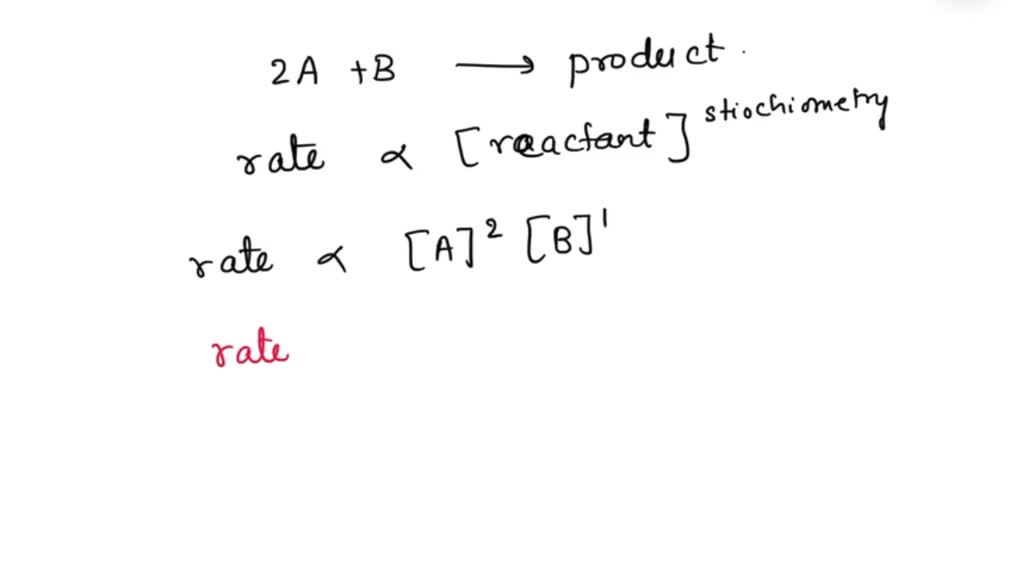 2A + B ⟶ product.
rate ∝ [reactant]^stiochiometry
rate ∝ [A]² [B]¹
rate